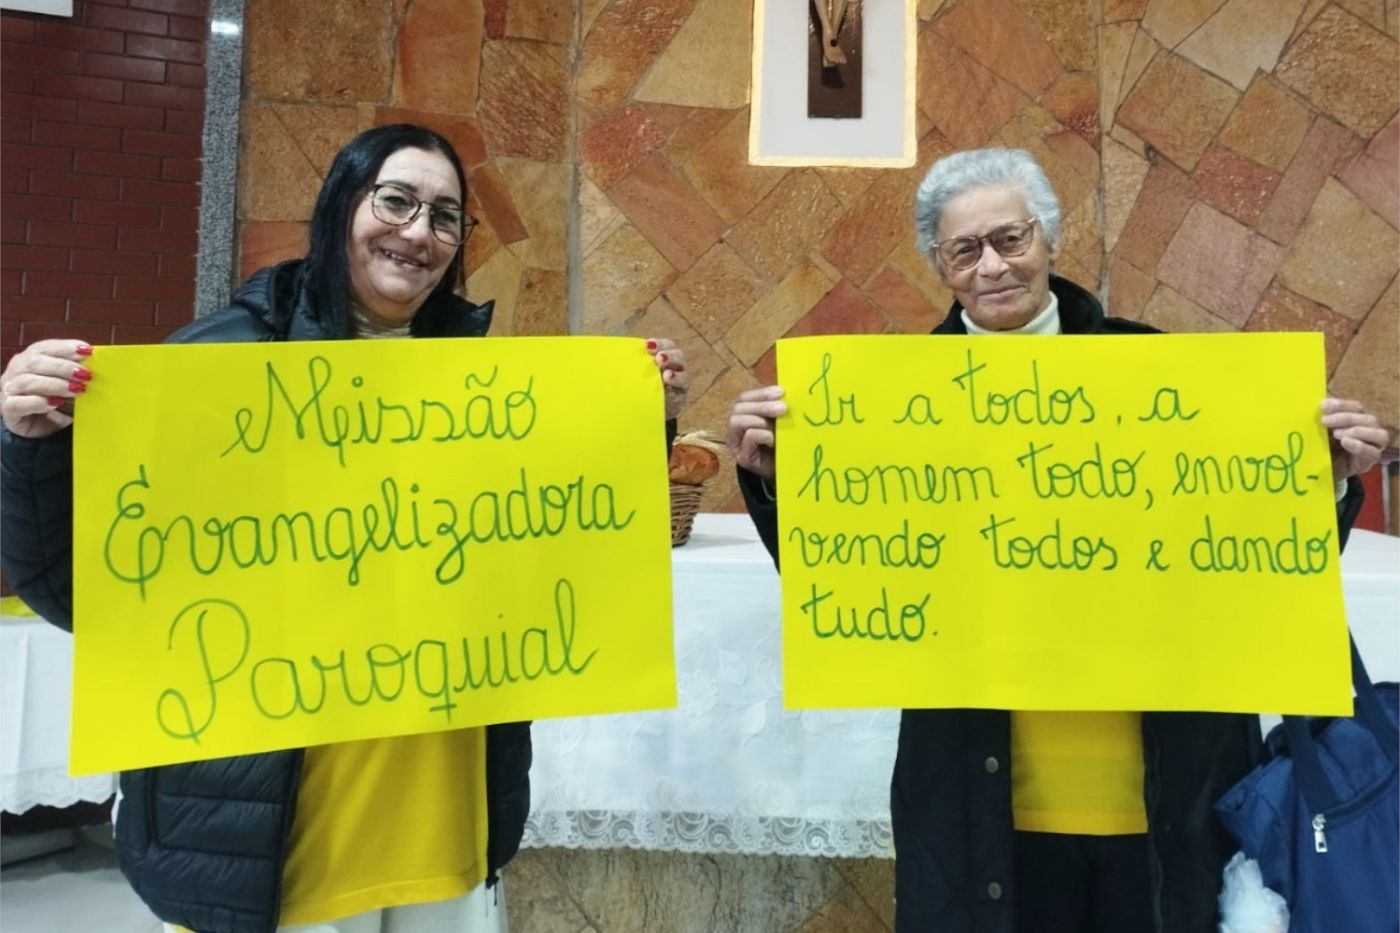 Missão
Evangelizadora
Paroquial
Ir a todos, a
homem todo, envol-
vendo todos e dando
tudo.